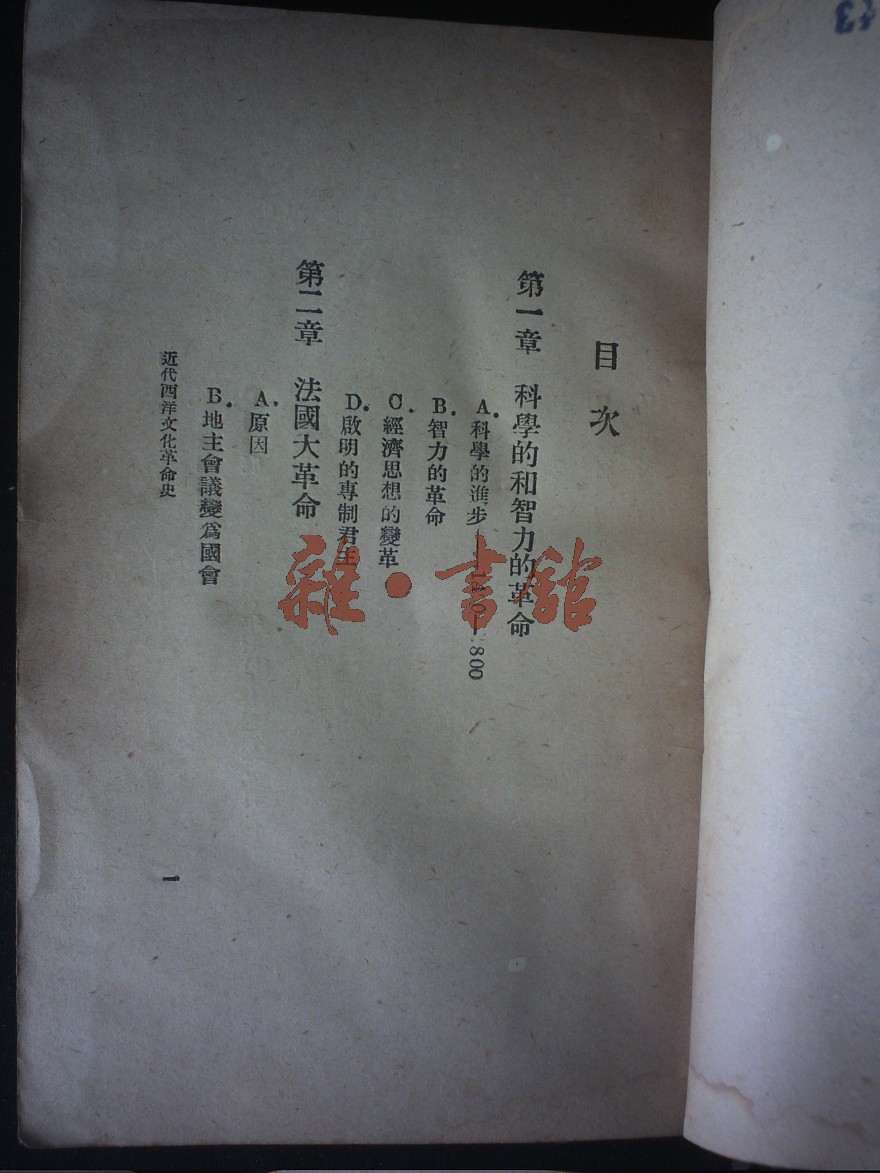 目次
第一章 科學的和智力的革命
A. 科學的進步
B. 智力的革命
C. 經濟思想的變革
D. 啟明的專制君主
第二章 法國大革命
A. 原因
B. 地主會議變為國會
近代西洋文化革命史
一
雜·書館